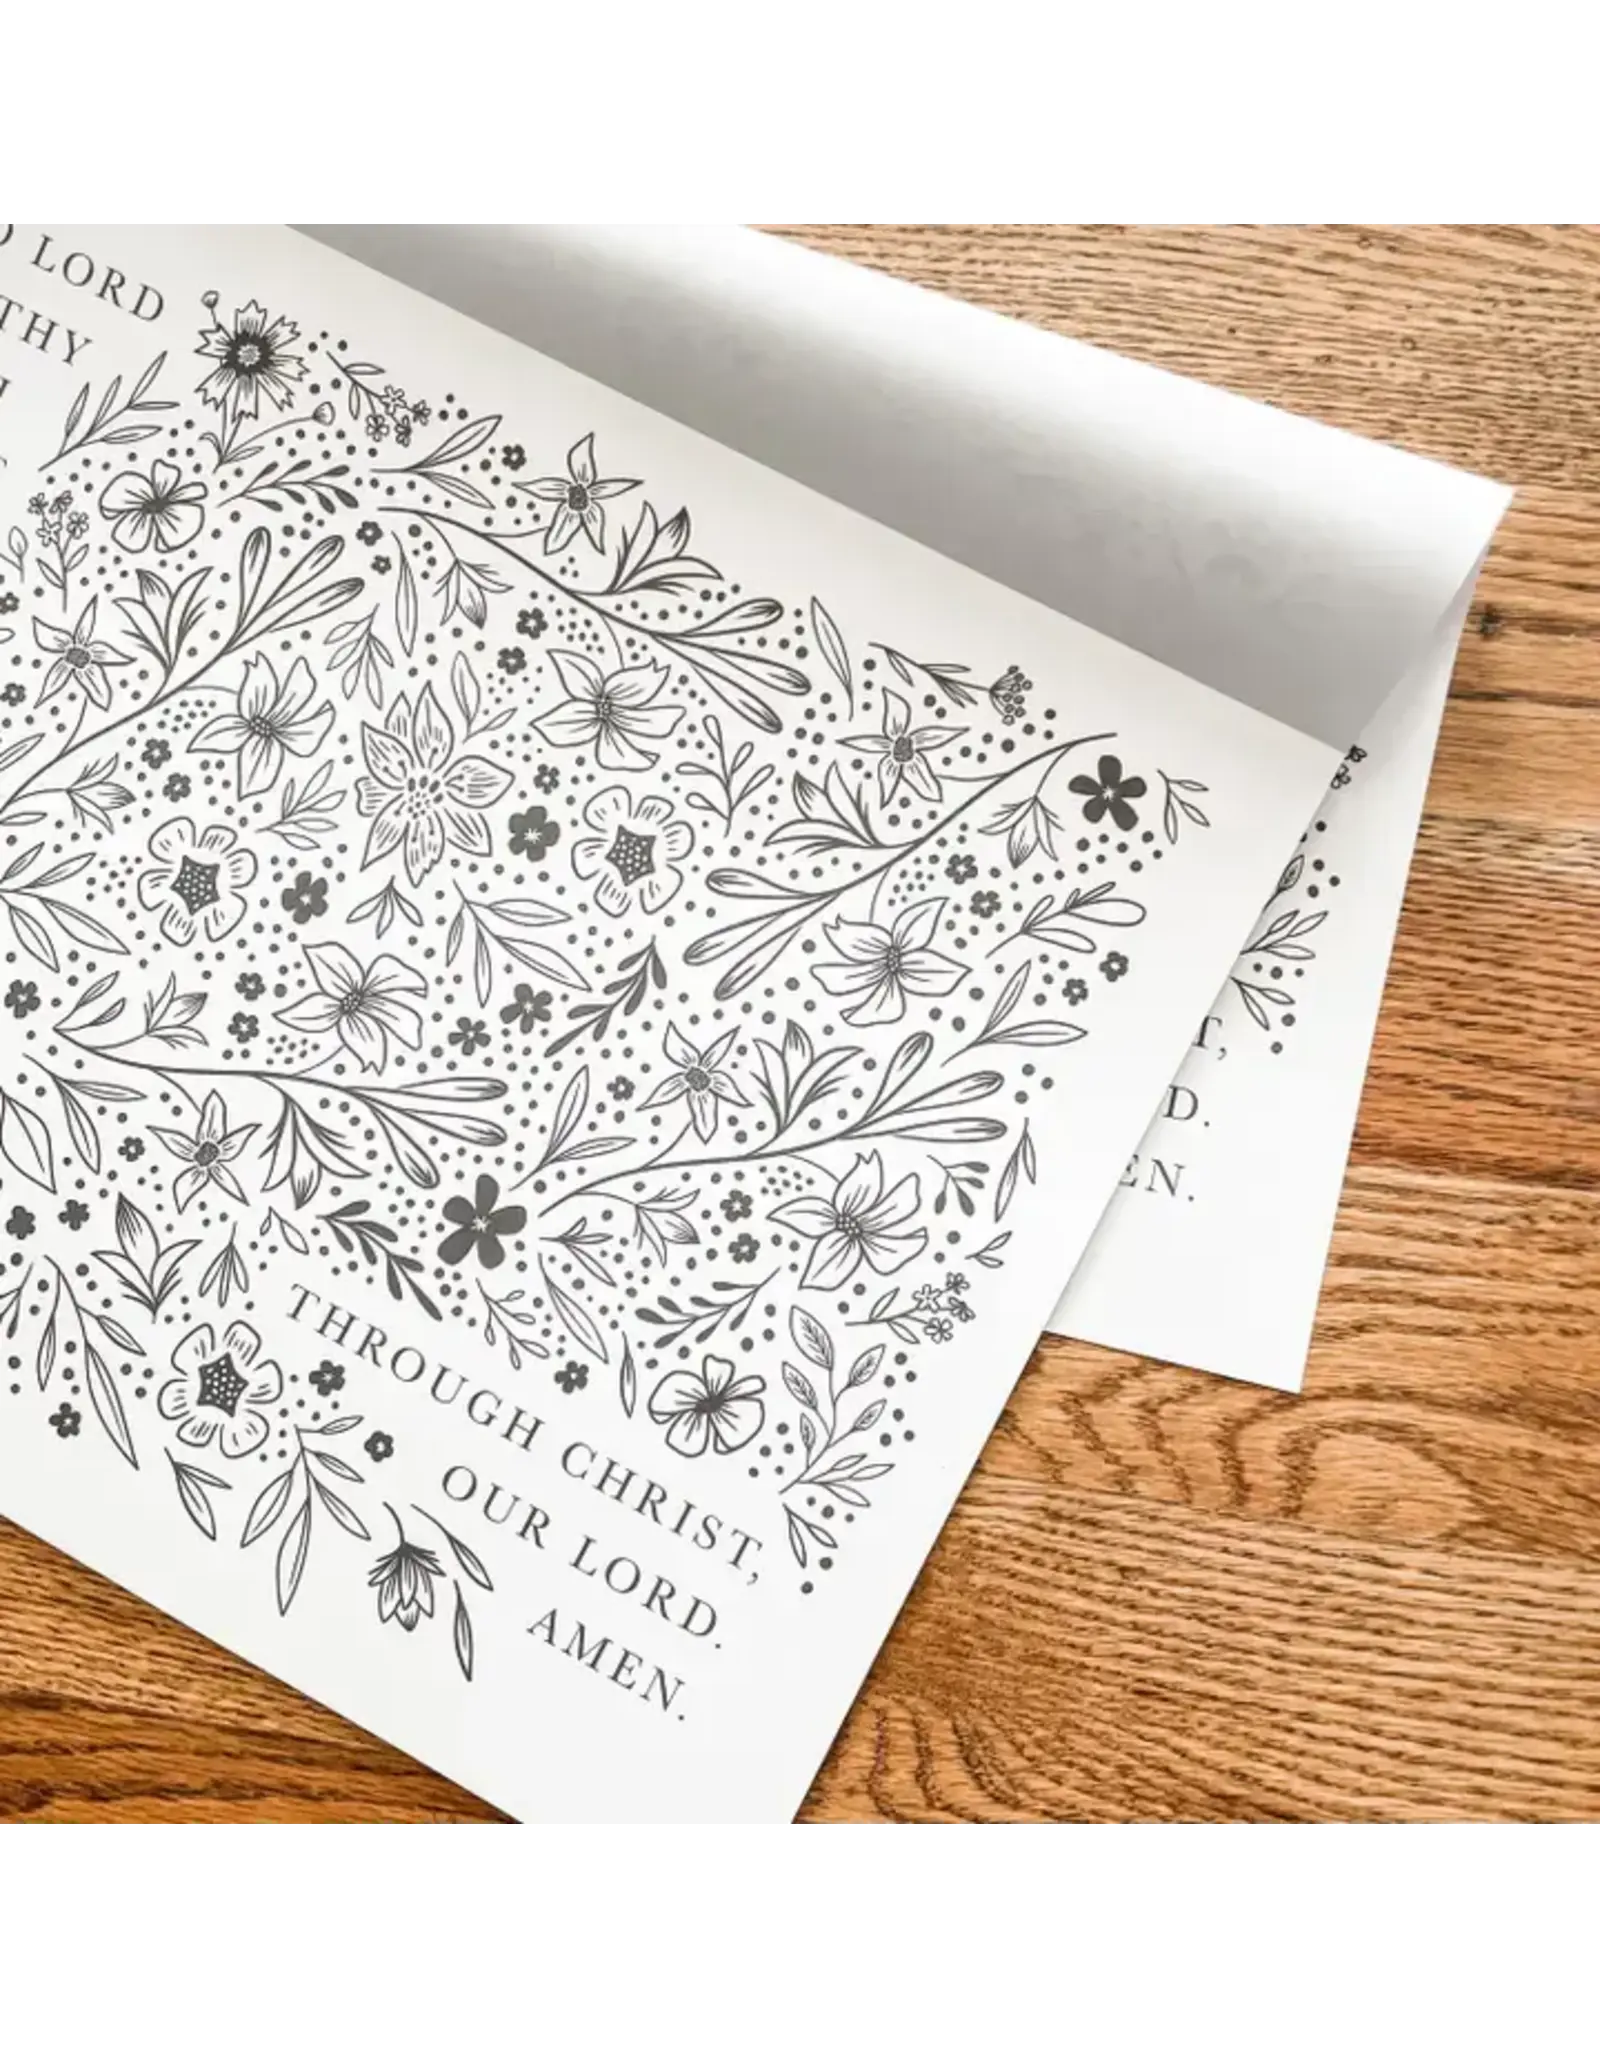 O LORD
THY
THROUGH CHRIST,
OUR LORD.
AMEN.
T,
D.
EN.